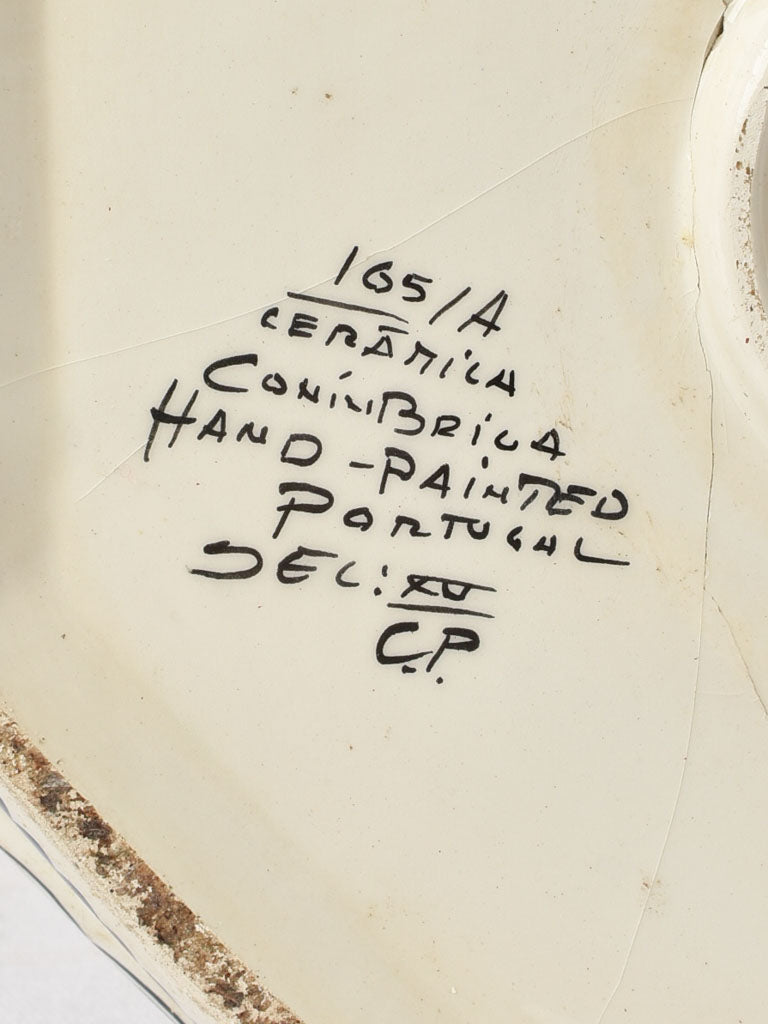 165/A
CERÂMICA
CONIMBRIGA
HAND-PAINTED
PORTUGAL
SEC: XV
C.P.